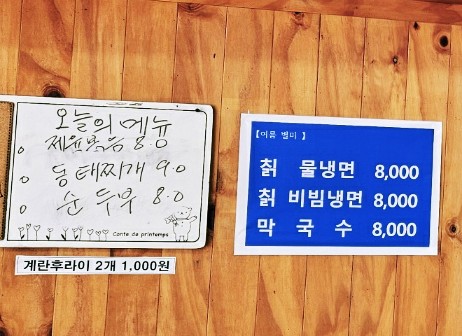 오늘의 메뉴
제육볶음 8.0
동태찌개 9.0
순두부 8.0
Conte de printemps
계란후라이 2개 1,000원
[여름 별미]
칡 물냉면 8,000
칡 비빔냉면 8,000
막국수 8,000